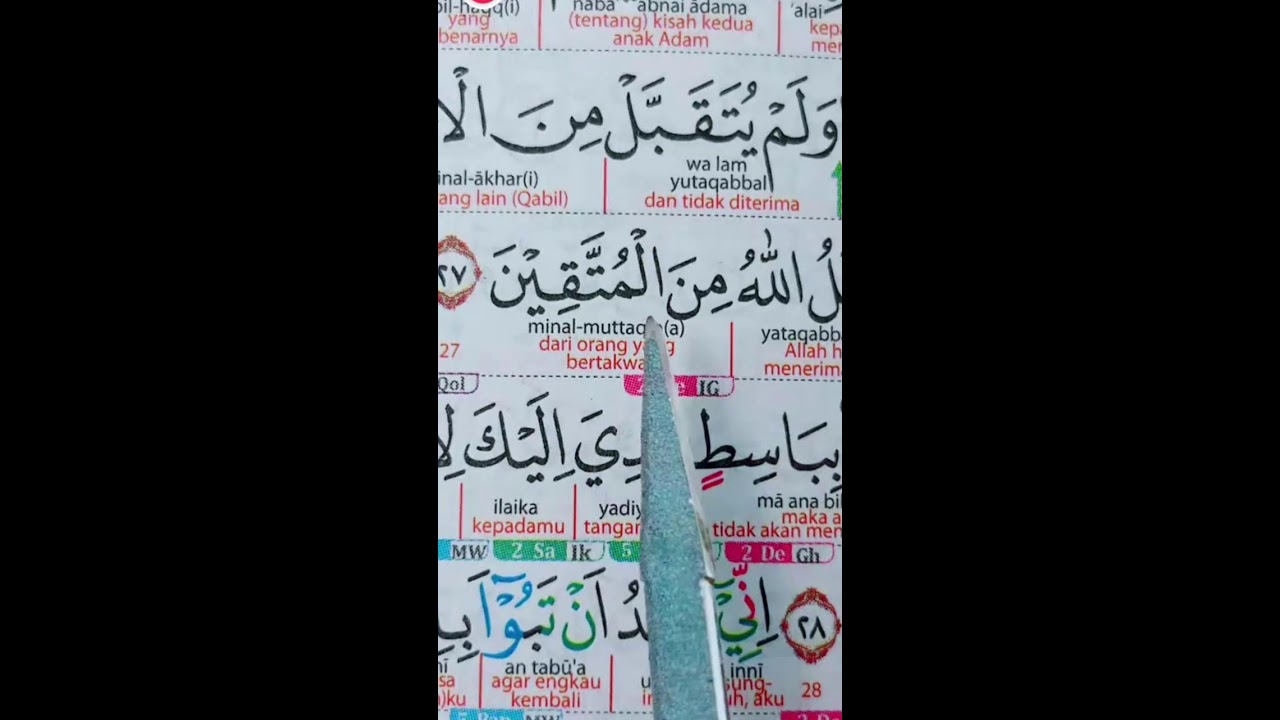 bil-ḥaqq(i) naba' abnai ādama 'alai
yang (tentang) kisah kedua kep
benarnya anak Adam mer
وَلَمْ يُتَقَبَّلْ مِنَ الْاٰ
wa lam
inal-ākhar(i) yutaqabbal
ang lain (Qabil) dan tidak diterima
لُ اللّٰهُ مِنَ الْمُتَّقِيْنَ ٢٧
minal-muttaq (a) yataqabb
27 dari orang y g Allah h
bertakwa menerima
Qol IG
بِبَاسِطٍ دِيَ اِلَيْكَ لِا
ilaika yadiy mā ana bi
kepadamu tangan maka a
tidak akan men
MW 2 Sa Ik 5 2 De Gh
٢٨ اِنِّيْ دُ اَنْ تَبُوْۤاَ بِ
an tabū'a innī
sa agar engkau sung-
)ku kembali uh, aku 28